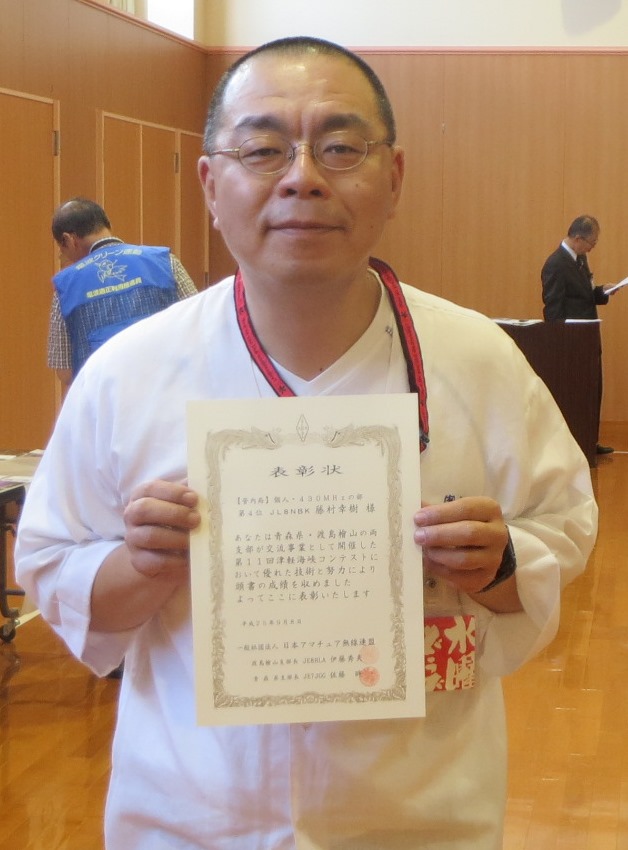 電波クリーン運動
電波適正利用推進員
表彰状
【管内局】個人・430MHzの部
第4位 JL8NBK 藤村幸樹 様
あなたは青森県・渡島檜山の両
支部が交流事業として開催した
第11回津軽海峡コンテストに
おいて優れた技術と努力により
頭書の成績を収めました
よってここに表彰いたします
一般社団法人 日本アマチュア無線連盟
渡島檜山支部長 伊藤秀夫
青森県支部長 佐藤
水曜
どうで